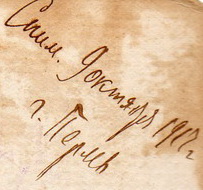 Сним. 9 октября 1917 г
г. Пермь